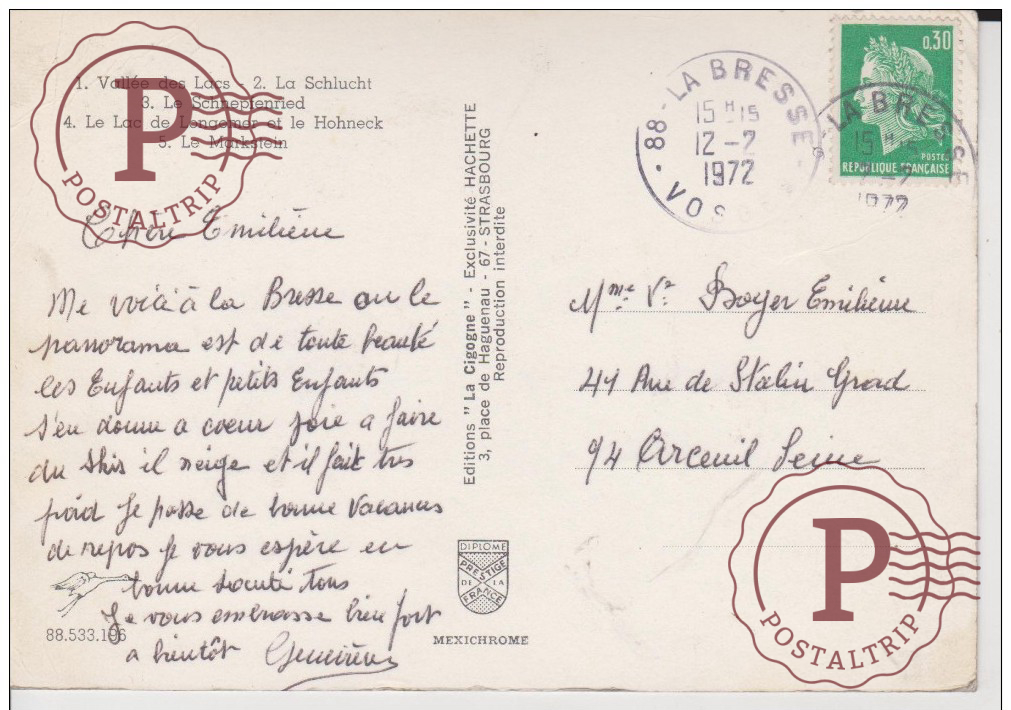 1. Vallée des Lacs - 2. La Schlucht
3. Le Schnepfenried
4. Le Lac de Longemer et le Hohneck
5. Le Markstein
P
POSTALTRIP
Chère Emilième
Me voici à la Bresse ou le
panorama est de toute beauté
les Enfants et petits Enfants
s'en donne a coeur joie a faire
du skis il neige et il fait tres
froid Je passe de bonne Vacances
de repos Je vous espère en
bonne santé tous
Je vous embrasse bien fort
a bientôt Geneviève
88.533.106
Editions " La Cigogne " - Exclusivité HACHETTE
3, place de Haguenau - 67 - STRASBOURG
Reproduction interdite
DIPLOME
PRESTIGE
DE LA
FRANCE
MEXICHROME
88 - LA BRESSE
15 H 15
12 - 2
1972
VOS
0,30
POSTES
REPUBLIQUE FRANÇAISE
LA BRESSE
15 H
1972
Mme Ve Boyer Emilième
41 Ave de Stalin Grad
94 Arceuil Seine
P
POSTALTRIP